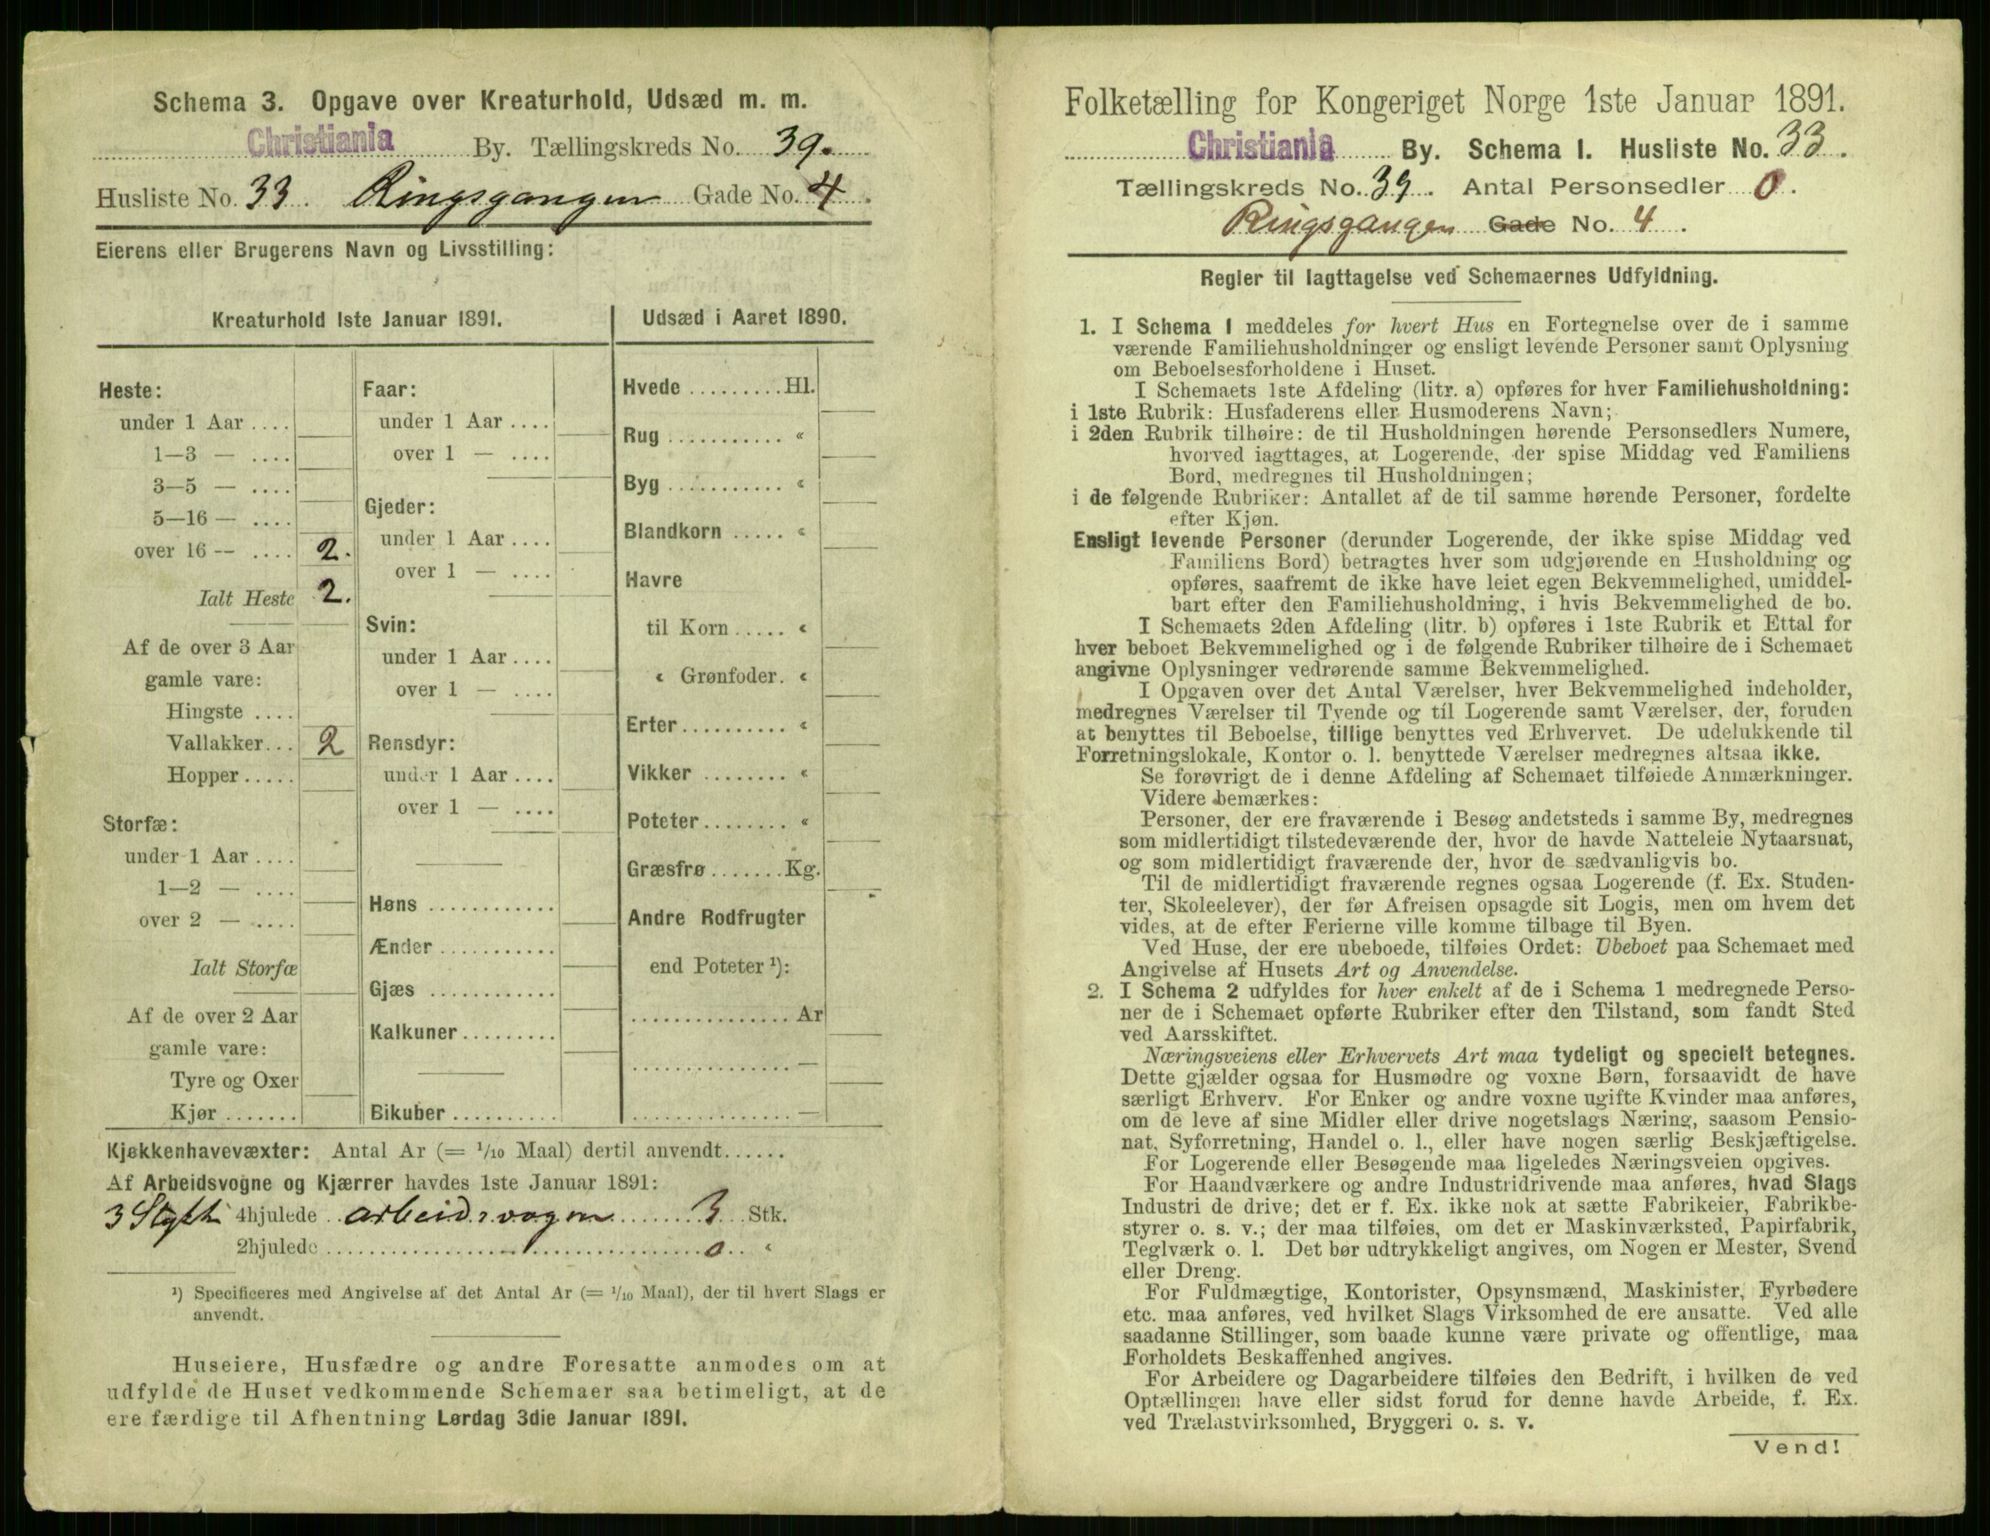 Schema 3. Opgave over Kreaturhold, Udsæd m. m.
Christiania By. Tællingskreds No. 39.
Husliste No. 33. Ringsgangen Gade No. 4.
Eierens eller Brugerens Navn og Livsstilling:
Kreaturhold 1ste Januar 1891.
Heste:
under 1 Aar ....
1—3 — ....
3—5 — ....
5—16 — ....
over 16 — .... 2.
Ialt Heste 2.
Af de over 3 Aar
gamle vare:
Hingste ....
Vallakker... 2
Hopper.....
Storfæ:
under 1 Aar ....
1—2 — ....
over 2 — ....
Ialt Storfæ
Af de over 2 Aar
gamle vare:
Tyre og Oxer
Kjør .......
Faar:
under 1 Aar ....
over 1 — ....
Gjeder:
under 1 Aar ....
over 1 — ....
Svin:
under 1 Aar ....
over 1 — ....
Rensdyr:
under 1 Aar ....
over 1 — ....
Høns ............
Ænder ...........
Gjæs ............
Kalkuner.........
Bikuber ..........
Udsæd i Aaret 1890.
Hvede .........Hl.
Rug ........... «
Byg ........... «
Blandkorn ..... «
Havre
til Korn ..... «
« Grønfoder. «
Erter ......... «
Vikker ........ «
Poteter........ «
Græsfrø .......Kg.
Andre Rodfrugter
end Poteter ¹):
............... Ar
............... —
............... —
Kjøkkenhavevæxter: Antal Ar (= 1/10 Maal) dertil anvendt......
Af Arbeidsvogne og Kjærrer havdes 1ste Januar 1891:
3 4hjulede arbeidsvogne 3 Stk.
2hjulede .................. 0 «
¹) Specificeres med Angivelse af det Antal Ar (= 1/10 Maal), der til hvert Slags er
anvendt.
Huseiere, Husfædre og andre Foresatte anmodes om at
udfylde de Huset vedkommende Schemaer saa betimeligt, at de
ere færdige til Afhentning Lørdag 3die Januar 1891.
Folketælling for Kongeriget Norge 1ste Januar 1891.
Christiania By. Schema 1. Husliste No. 33.
Tællingskreds No. 39. Antal Personsedler 0.
Ringsgangen Gade No. 4.
Regler til Iagttagelse ved Schemaernes Udfyldning.
1. I Schema 1 meddeles for hvert Hus en Fortegnelse over de i samme
værende Familiehusholdninger og ensligt levende Personer samt Oplysning
om Beboelsesforholdene i Huset.
I Schemaets 1ste Afdeling (litr. a) opføres for hver Familiehusholdning:
i 1ste Rubrik: Husfaderens eller Husmoderens Navn;
i 2den Rubrik tilhøire: de til Husholdningen hørende Personsedlers Numere,
hvorved iagttages, at Logerende, der spise Middag ved Familiens
Bord, medregnes til Husholdningen;
i de følgende Rubriker: Antallet af de til samme hørende Personer, fordelte
efter Kjøn.
Ensligt levende Personer (derunder Logerende, der ikke spise Middag ved
Familiens Bord) betragtes hver som udgjørende en Husholdning og
opføres, saafremt de ikke have leiet egen Bekvemmelighed, umiddel-
bart efter den Familiehusholdning, i hvis Bekvemmelighed de bo.
I Schemaets 2den Afdeling (litr. b) opføres i 1ste Rubrik et Ettal for
hver beboet Bekvemmelighed og i de følgende Rubriker tilhøire de i Schemaet
angivne Oplysninger vedrørende samme Bekvemmelighed.
I Opgaven over det Antal Værelser, hver Bekvemmelighed indeholder,
medregnes Værelser til Tyende og til Logerende samt Værelser, der, foruden
at benyttes til Beboelse, tillige benyttes ved Erhvervet. De udelukkende til
Forretningslokale, Kontor o. l. benyttede Værelser medregnes altsaa ikke.
Se forøvrigt de i denne Afdeling af Schemaet tilføiede Anmærkninger.
Videre bemærkes:
Personer, der ere fraværende i Besøg andetsteds i samme By, medregnes
som midlertidigt tilstedeværende der, hvor de havde Natteleie Nytaarsnat,
og som midlertidigt fraværende der, hvor de sædvanligvis bo.
Til de midlertidigt fraværende regnes ogsaa Logerende (f. Ex. Studen-
ter, Skoleelever), der før Afreisen opsagde sit Logis, men om hvem det
vides, at de efter Ferierne ville komme tilbage til Byen.
Ved Huse, der ere ubeboede, tilføies Ordet: Ubeboet paa Schemaet med
Angivelse af Husets Art og Anvendelse.
2. I Schema 2 udfyldes for hver enkelt af de i Schema 1 medregnede Perso-
ner de i Schemaet opførte Rubriker efter den Tilstand, som fandt Sted
ved Aarsskiftet.
Næringsveiens eller Erhvervets Art maa tydeligt og specielt betegnes.
Dette gjælder ogsaa for Husmødre og voxne Børn, forsaavidt de have
særligt Erhverv. For Enker og andre voxne ugifte Kvinder maa anføres,
om de leve af sine Midler eller drive nogetslags Næring, saasom Pensio-
nat, Syforretning, Handel o. l., eller have nogen særlig Beskjæftigelse.
For Logerende eller Besøgende maa ligeledes Næringsveien opgives.
For Haandværkere og andre Industridrivende maa anføres, hvad Slags
Industri de drive; det er f. Ex. ikke nok at sætte Fabrikeier, Fabrikbe-
styrer o. s. v.; der maa tilføies, om det er Maskinværksted, Papirfabrik,
Teglværk o. l. Det bør udtrykkeligt angives, om Nogen er Mester, Svend
eller Dreng.
For Fuldmægtige, Kontorister, Opsynsmænd, Maskinister, Fyrbødere
etc. maa anføres, ved hvilket Slags Virksomhed de ere ansatte. Ved alle
saadanne Stillinger, som baade kunne være private og offentlige, maa
Forholdets Beskaffenhed angives.
For Arbeidere og Dagarbeidere tilføies den Bedrift, i hvilken de ved
Optællingen have eller sidst forud for denne havde Arbeide, f. Ex.
ved Trælastvirksomhed, Bryggeri o. s. v.
Vend!